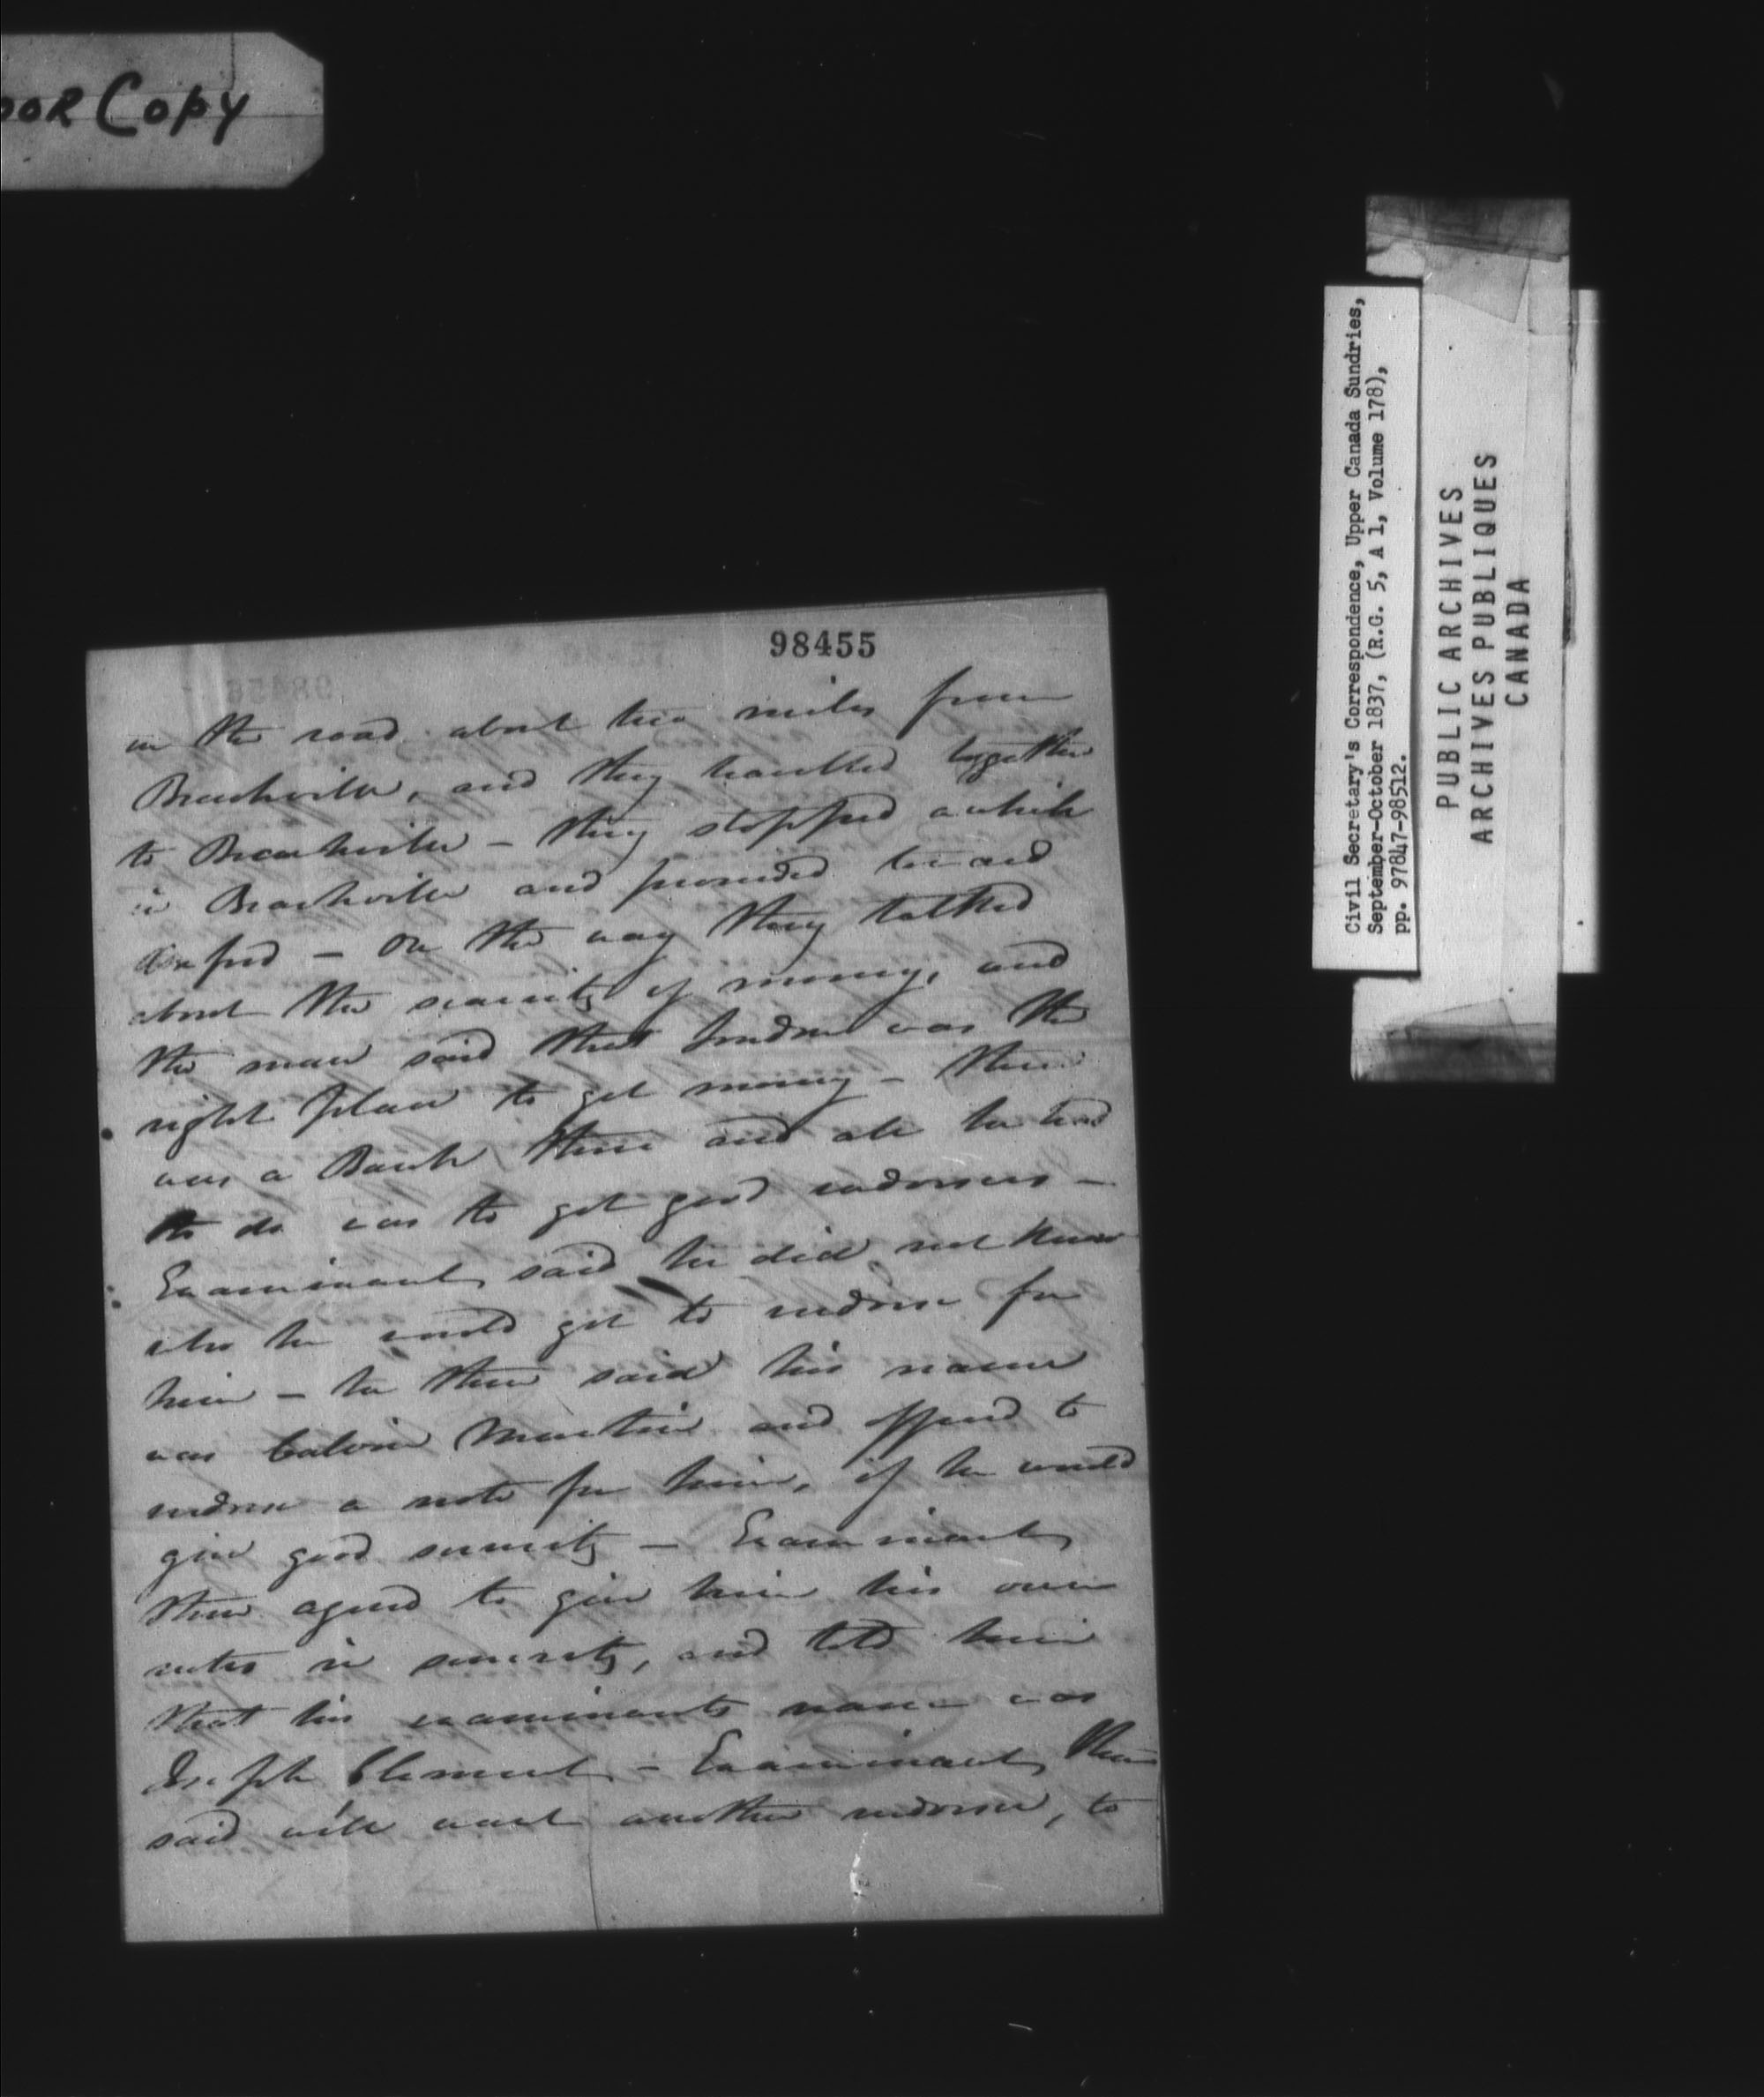 OOR Copy
98455
on the road about two miles from
Beachville, and they travelled together
to Beachville – they stopped awhile
in Beachville and proceeded toward
Oxford – On the way they talked
about the scarcity of money, and
the man said that London was the
right place to get money – there
was a Bank there and all he had
to do was to get good endorsers –
Examinant said he did not know
who he could get to endorse for
him – he then said his name
was Calvin Martin and offered to
endorse a note for him, if he would
give good security – Examinant
then agreed to give him his own
notes in security, and told him
that his examinants name was
Joseph Clement – Examinant then
said will want another endorser, to
Civil Secretary's Correspondence, Upper Canada Sundries,
September-October 1837, (R.G. 5, A 1, Volume 178),
pp. 97847-98512.
PUBLIC ARCHIVES
ARCHIVES PUBLIQUES
CANADA